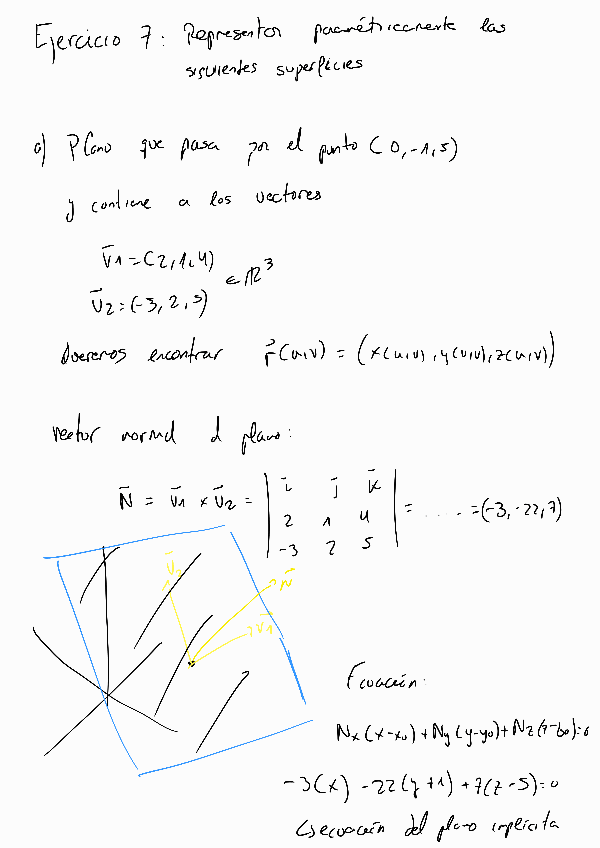 Ejercicio 7: Representar paramétricamente las
siguientes superficies
a) Plano que pasa por el punto (0,-1,5)
y contiene a los vectores
v̄1=(2,1,4)
v̄2=(-3,2,5) ∈ ℝ³
Queremos encontrar r⃗(u,v) = (x(u,v), y(u,v), z(u,v))
vector normal al plano:
N̄ = v̄1 × v̄2 = | ī j̄ k̄ | = ..... =(-3,-22,7)
2 1 4
-3 2 5
v̄2
N̄
v̄1
Ecuación:
Nx(x-x0)+Ny(y-y0)+Nz(z-z0)=0
-3(x) -22(y+1) +7(z-5)=0
ecuación del plano implícita